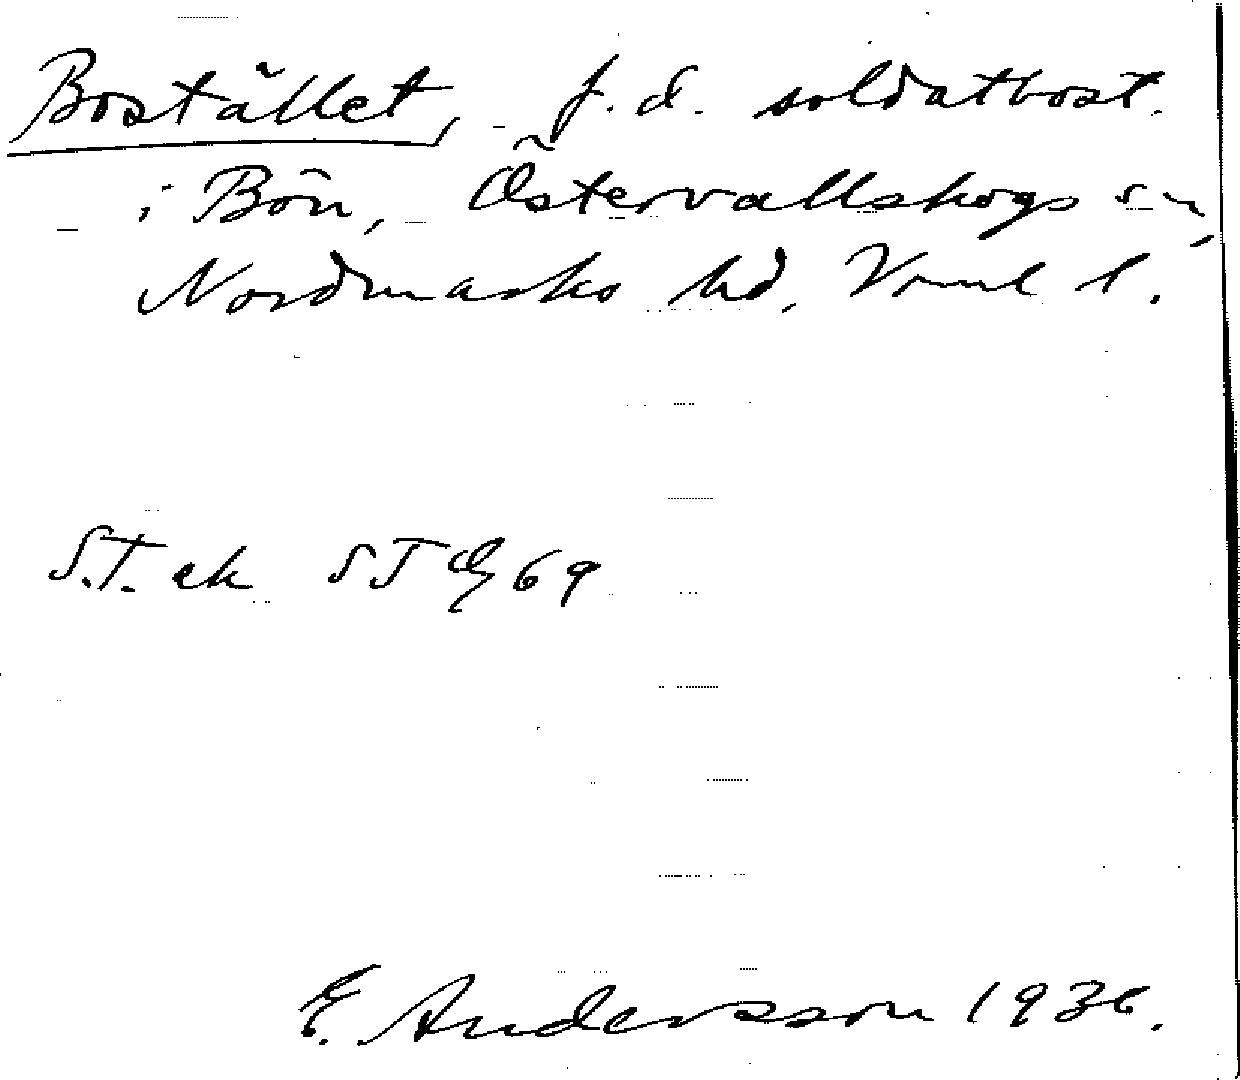 Bostället, f.d. soldatbost.
i Bön, Östervallskogs sn,
Nordmarks hd, Vrml l.
S.T. ek ST G 69
E. Andersson 1936.